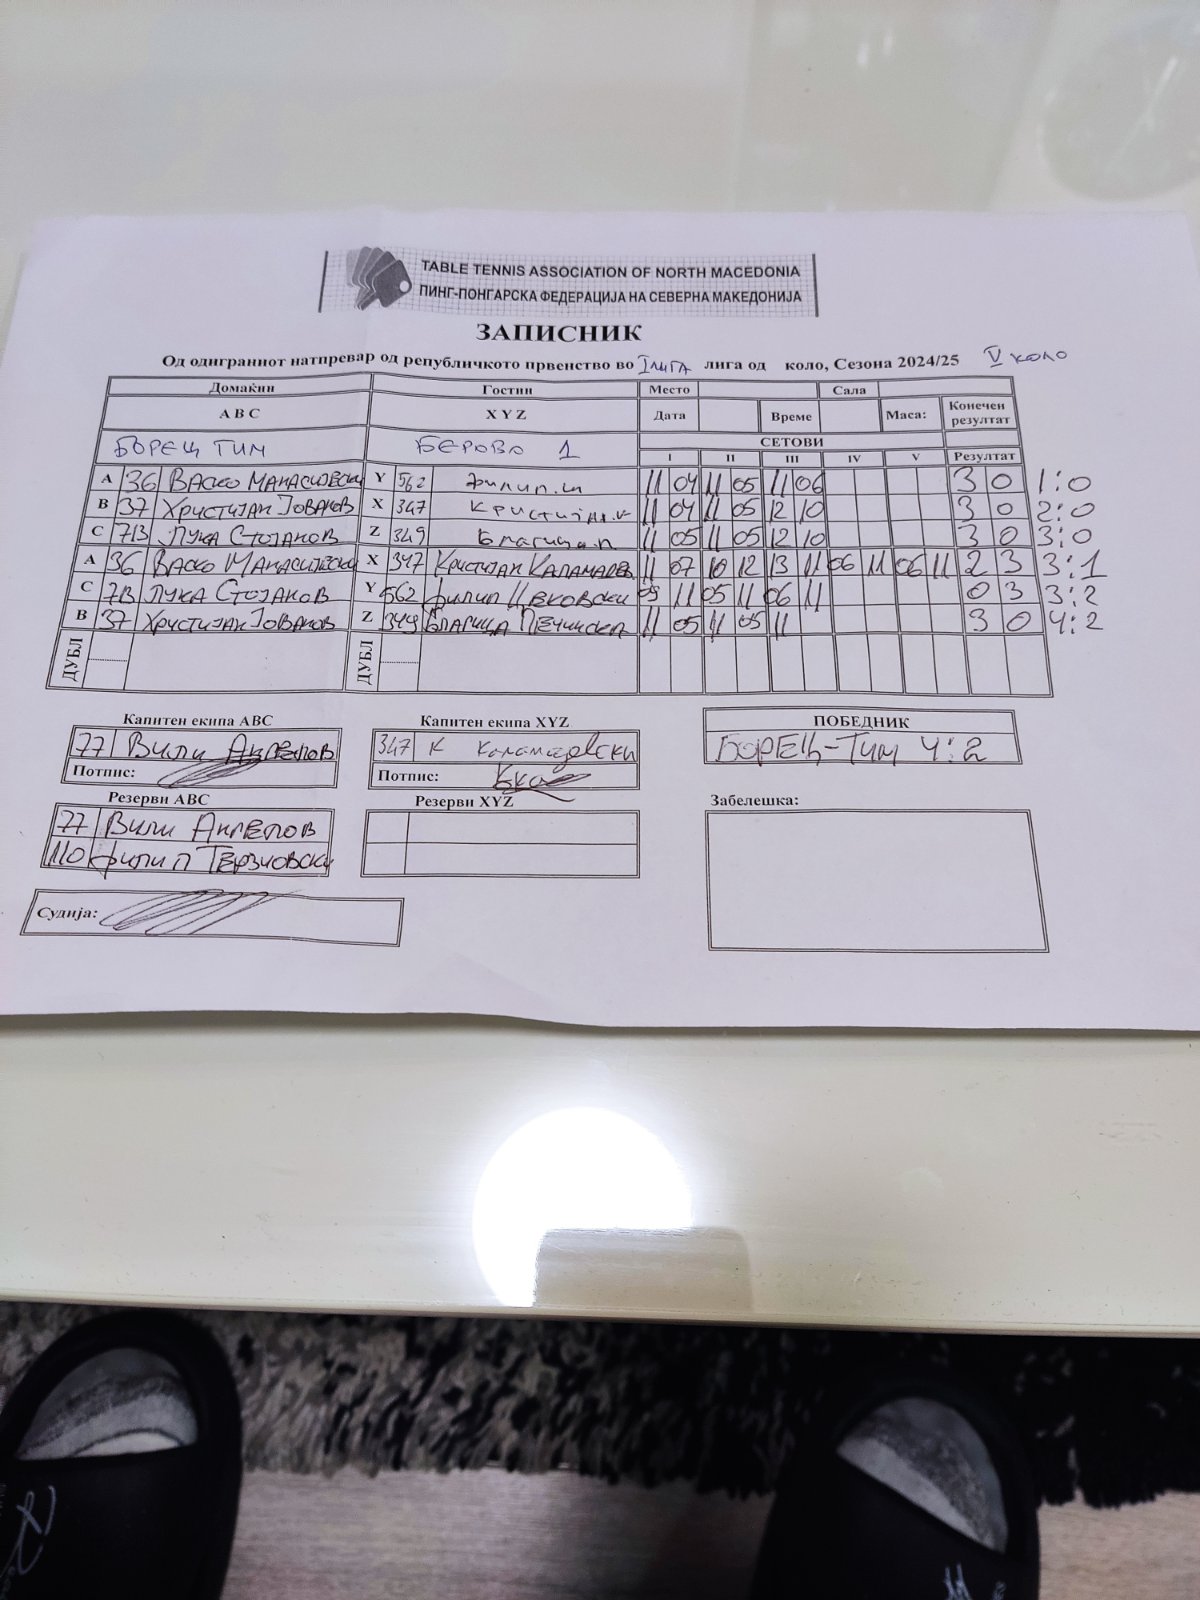 TABLE TENNIS ASSOCIATION OF NORTH MACEDONIA
ПИНГ-ПОНГАРСКА ФЕДЕРАЦИЈА НА СЕВЕРНА МАКЕДОНИЈА
ЗАПИСНИК
Од одиграниот натпревар од републичкото првенство во I ЛИГА лига од коло, Сезона 2024/25 V коло
Домаќин Гости Место Сала
A B C X Y Z Дата Време Маса: Конечен резултат
БОРЕЦ ТИМ БЕРОВО 1 СЕТОВИ
I II III IV V Резултат
A 36 Васко Манасиевски Y 562 Филип.ш 11 04 11 05 11 06 3 0 1:0
B 37 Христијан Јованов X 347 Кристијан.к 11 04 11 05 12 10 3 0 2:0
C 713 Лука Стојанов Z 349 Благица.п 11 05 11 05 12 10 3 0 3:0
A 36 Васко Манасиевски X 347 Кристијан 11 07 10 12 13 11 06 11 06 11 2 3 3:1
C 713 Лука Стојанов Y 562 Филип 09 11 05 11 06 11 0 3 3:2
B 37 Христијан Јованов Z 349 Благица 11 05 11 05 11 3 0 4:2
ДУБЛ ДУБЛ
Капитен екипа ABC Капитен екипа XYZ ПОБЕДНИК
77 Вили Ангелов 347 К БОРЕЦ-ТИМ 4:2
Потпис: Потпис:
Резерви ABC Резерви XYZ Забелешка:
77 Вили Ангелов
110 Филип Терзиовски
Судија: